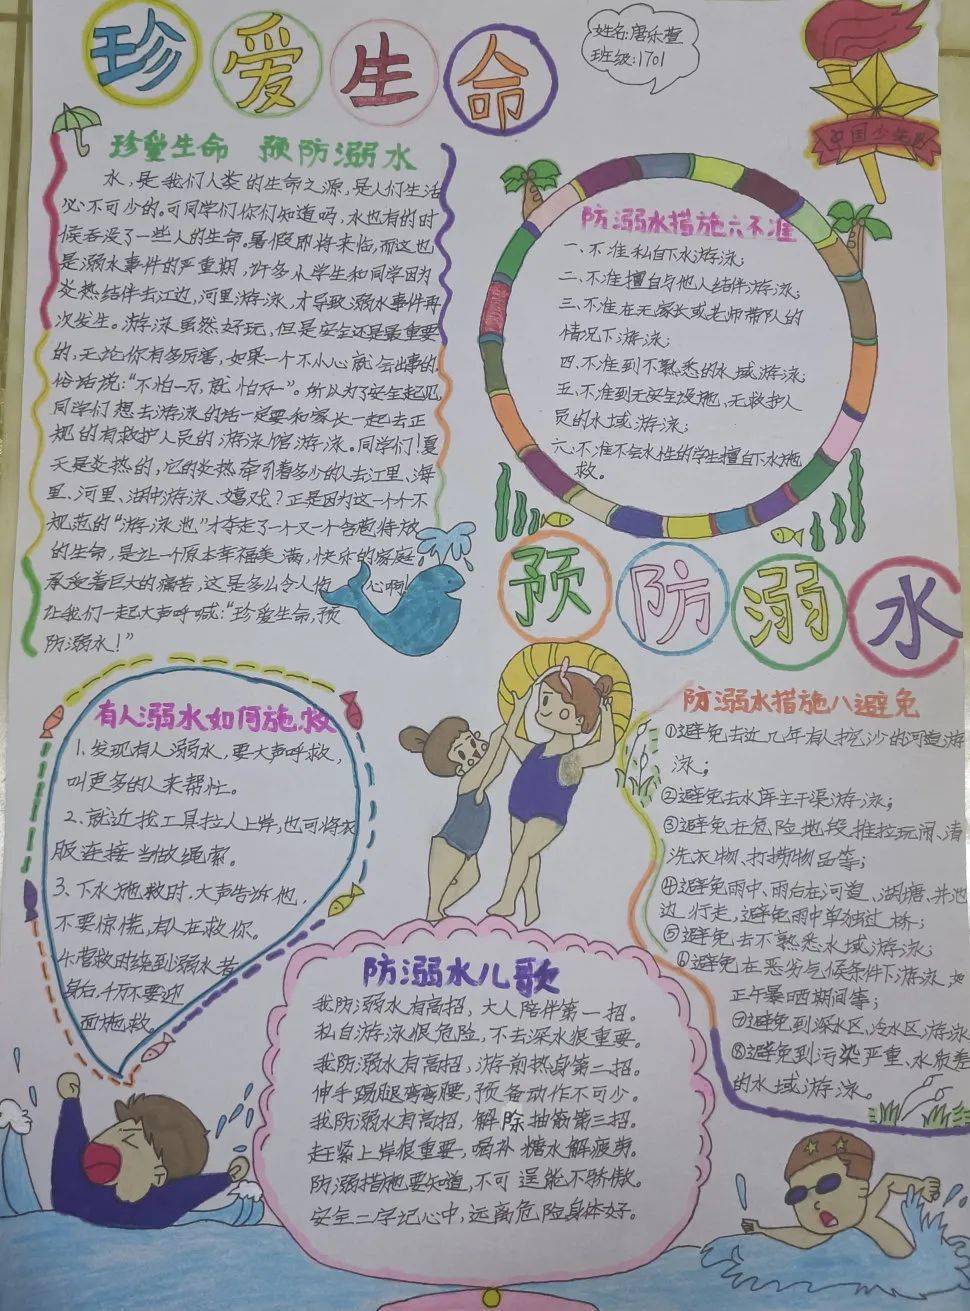 珍爱生命
姓名:唐乐萱
班级:1701
中国少先队
珍爱生命 预防溺水
水,是我们人类的生命之源,是人们生活
必不可少的。可同学们你们知道吗,水也有的时
候吞没了一些人的生命。暑假即将来临,而这也
是溺水事件的严重期,许多小学生和同学因为
炎热结伴去江边,河里游泳,才导致溺水事件再
次发生。游泳虽然好玩,但是安全还是最重要
的,无论你有多厉害,如果一个不小心就会出事的,
俗话说:“不怕一万,就怕万一”。所以为了安全起见,
同学们想去游泳的话一定要和家长一起去正
规的有救护人员的游泳馆游泳。同学们!夏
天是炎热的,它的炎热牵引着多少的人去江里、海
里、河里、湖中游泳、嬉戏?正是因为这一个个不
规范的“游泳池”才夺走了一个又一个含苞待放
的生命,是让一个原本幸福美满,快乐的家庭
承受着巨大的痛苦,这是多么令人伤心啊!
让我们一起大声呼喊:“珍爱生命,预
防溺水!”
防溺水措施六不准
一、不准私自下水游泳;
二、不准擅自与他人结伴游泳;
三、不准在无家长或老师带队的
情况下游泳;
四、不准到不熟悉的水域游泳;
五、不准到无安全设施、无救护人
员的水域游泳;
六、不准不会水性的学生擅自下水施
救。
预防溺水
有人溺水如何施救
1.发现有人溺水,要大声呼救,
叫更多的人来帮忙。
2、就近找工具拉人上岸,也可将衣
服连接当做绳索。
3、下水施救时,大声告诉他,
不要惊慌,有人在救你。
4.营救时绕到溺水者
身后,千万不要迎
面施救。
防溺水措施八避免
①避免去近几年有人挖沙的河道游
泳;
②避免去水库主干渠游泳;
③避免在危险地段推拉玩闹、清
洗衣物、打捞物品等;
④避免雨中、雨后在河道、湖塘、井池
边行走,避免雨中单独过桥;
⑤避免去不熟悉水域游泳;
⑥避免在恶劣气候条件下游泳,如
正午暴晒期间等;
⑦避免到深水区、冷水区游泳
⑧避免到污染严重、水质差
的水域游泳。
防溺水儿歌
我防溺水有高招,大人陪伴第一招。
私自游泳很危险,不去深水很重要。
我防溺水有高招,游前热身第二招。
伸手踢腿弯弯腰,预备动作不可少。
我防溺水有高招,解除抽筋第三招。
赶紧上岸很重要,喝补糖水解疲劳。
防溺措施要知道,不可逞能不骄傲。
安全二字记心中,远离危险身体好。